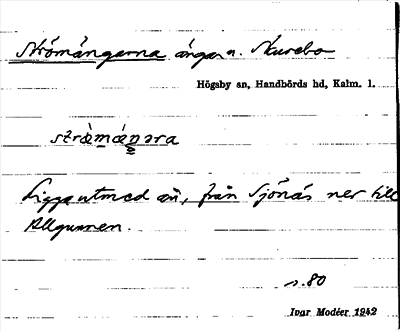 Strömängarna ängar n. Skurebo
Högsby sn, Handbörds hd, Kalm. l.
Ligga utmed ån, från Sjönäs ner till
Allgunnen.
s. 80
Ivar Modéer 1942